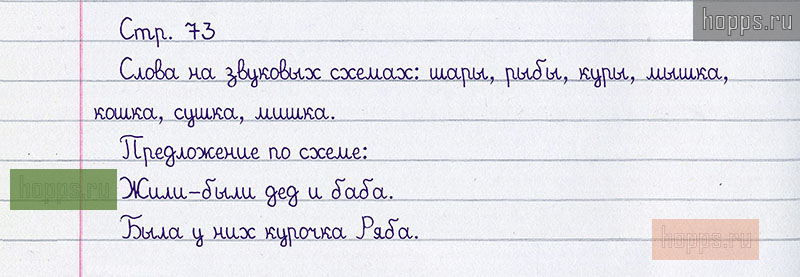 hopps.ru
Стр. 73
Слова на звуковых схемах: шары, рыбы, куры, мышка,
кошка, сушка, мишка.
Предложение по схеме:
hopps.ru
Жили-были дед и баба.
Была у них курочка Ряба.
hopps.ru